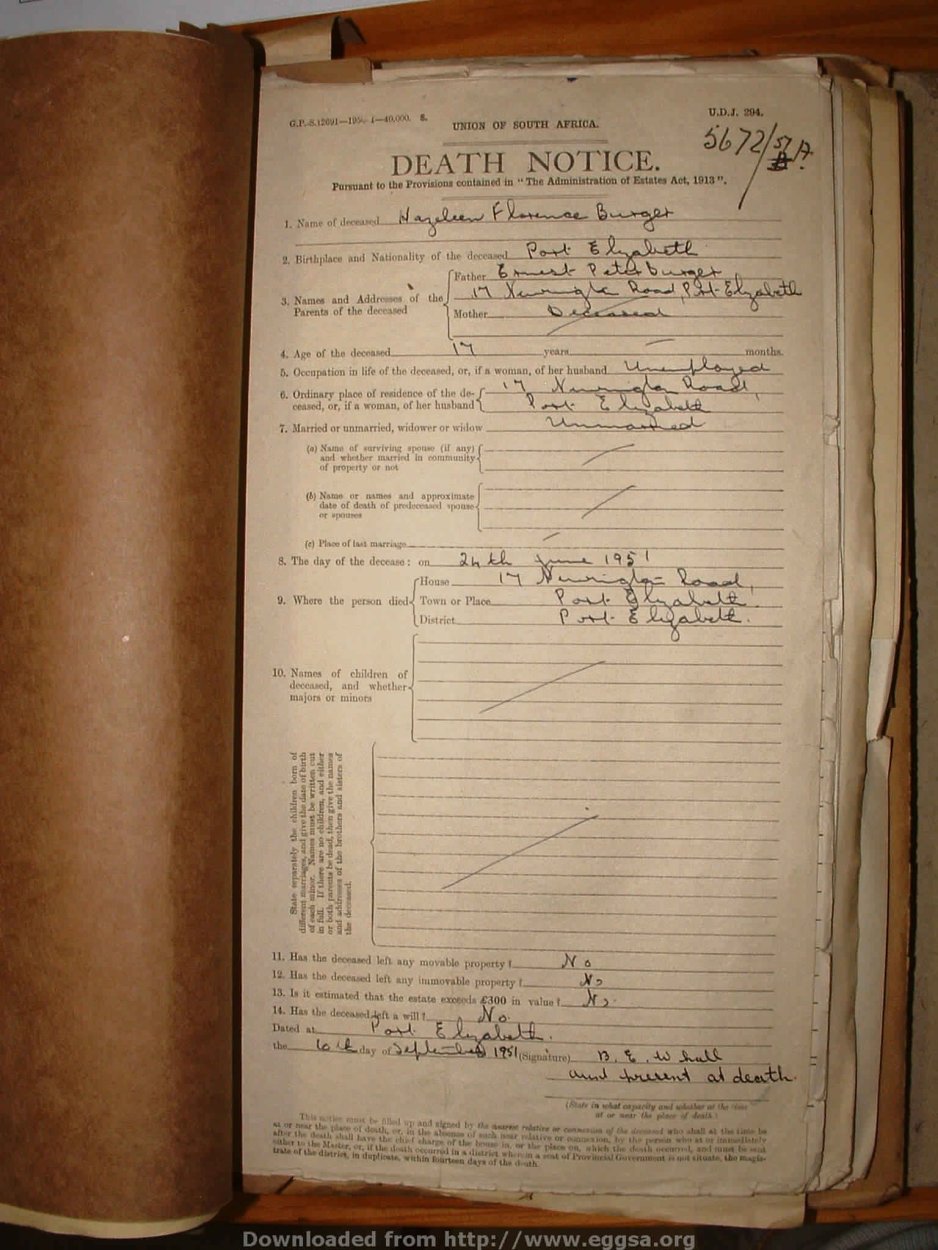 U.D.J. 294.
G.P.-S.12691—195 —1—40,000. S.
UNION OF SOUTH AFRICA.
5672/51
DEATH NOTICE.
Pursuant to the Provisions contained in “The Administration of Estates Act, 1913”.
1. Name of deceased Hazeleen Florence Burger
2. Birthplace and Nationality of the deceased Port Elizabeth
3. Names and Addresses of the Parents of the deceased
Father Ernest Peter Burger
17 Road, Port Elizabeth
Mother Deceased
4. Age of the deceased 17 years — months.
5. Occupation in life of the deceased, or, if a woman, of her husband Unemployed
6. Ordinary place of residence of the deceased, or, if a woman, of her husband
17 Road,
Port Elizabeth
7. Married or unmarried, widower or widow Unmarried
(a) Name of surviving spouse (if any)
and whether married in community
of property or not
(b) Name or names and approximate
date of death of predeceased spouse
or spouses
(c) Place of last marriage —
8. The day of the decease: on 24th June 1951
9. Where the person died
House 17 Road,
Town or Place Port Elizabeth.
District Port Elizabeth.
10. Names of children of
deceased, and whether
majors or minors
State separately the children born of
different marriages, and give the date of birth
of each minor. Names must be written out
in full. If there are no children, and either
or both parents be dead, then give the names
and addresses of the brothers and sisters of
the deceased.
11. Has the deceased left any movable property? No
12. Has the deceased left any immovable property? No
13. Is it estimated that the estate exceeds £300 in value? No.
14. Has the deceased left a will? No.
Dated at Port Elizabeth.
the 10th day of September 1951 (Signature) B. E. W hall
aunt present at death.
(State in what capacity and whether at the time
at or near the place of death.)
This notice must be filled up and signed by the nearest relative or connexion of the deceased who shall at the time be
at or near the place of death, or, in the absence of such near relative or connexion, by the person who at or immediately
after the death shall have the chief charge of the house in, or the place on, which the death occurred, and must be sent
either to the Master, or, if the death occurred in a district wherein a seat of Provincial Government is not situate, the magis-
trate of the district, in duplicate, within fourteen days of the death.
Downloaded from http://www.eggsa.org